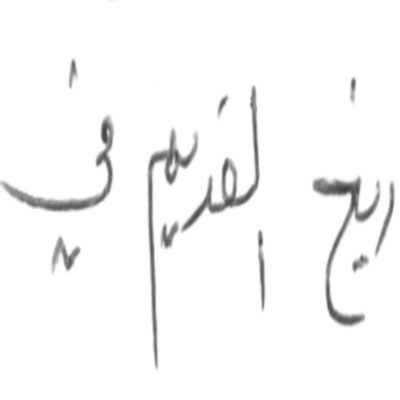 ريخ القديم في